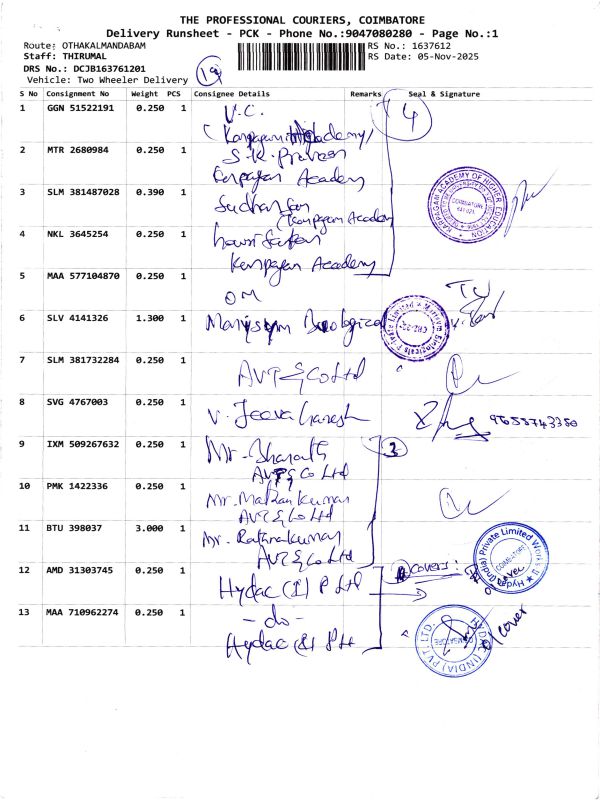 THE PROFESSIONAL COURIERS, COIMBATORE
Delivery Runsheet - PCK - Phone No.:9047080280 - Page No.:1
Route: OTHAKALMANDABAM
RS No.: 1637612
Staff: THIRUMAL
RS Date: 05-Nov-2025
DRS No.: DCJB163761201
Vehicle: Two Wheeler Delivery
S No Consignment No Weight PCS Consignee Details Remarks Seal & Signature
1 GGN 51522191 0.250 1 V.C. 4
Academy)
2 MTR 2680984 0.250 1 S.K. Praveen
Karpagam Academy
3 SLM 381487028 0.390 1 Sudharsan
(Karpagam Academy
KARPAGAM ACADEMY OF HIGHER EDUCATION
COIMBATORE
641 021.
4 NKL 3645254 0.250 1
Karpagam Academy
5 MAA 577104870 0.250 1 OM
6 SLV 4141326 1.300 1
7 SLM 381732284 0.250 1 AVT & Co Ltd
8 SVG 4767003 0.250 1 V. Jeeva Ganesh 9655743350
9 IXM 509267632 0.250 1 Mr. Bharath 3
AVT & Co Ltd
10 PMK 1422336 0.250 1 Mr. Mathan Kumar
AVT & Co Ltd
11 BTU 398037 3.000 1 Mr. Ratnakumar
AVT & Co Ltd
12 AMD 31303745 0.250 1 Hydac (I) P Ltd covers:
Hydac (India) Private Limited Works II
COIMBATORE
13 MAA 710962274 0.250 1 - do -
Hydac (I) P Ltd
HYDAC (INDIA) PVT. LTD.
COIMBATORE
cover